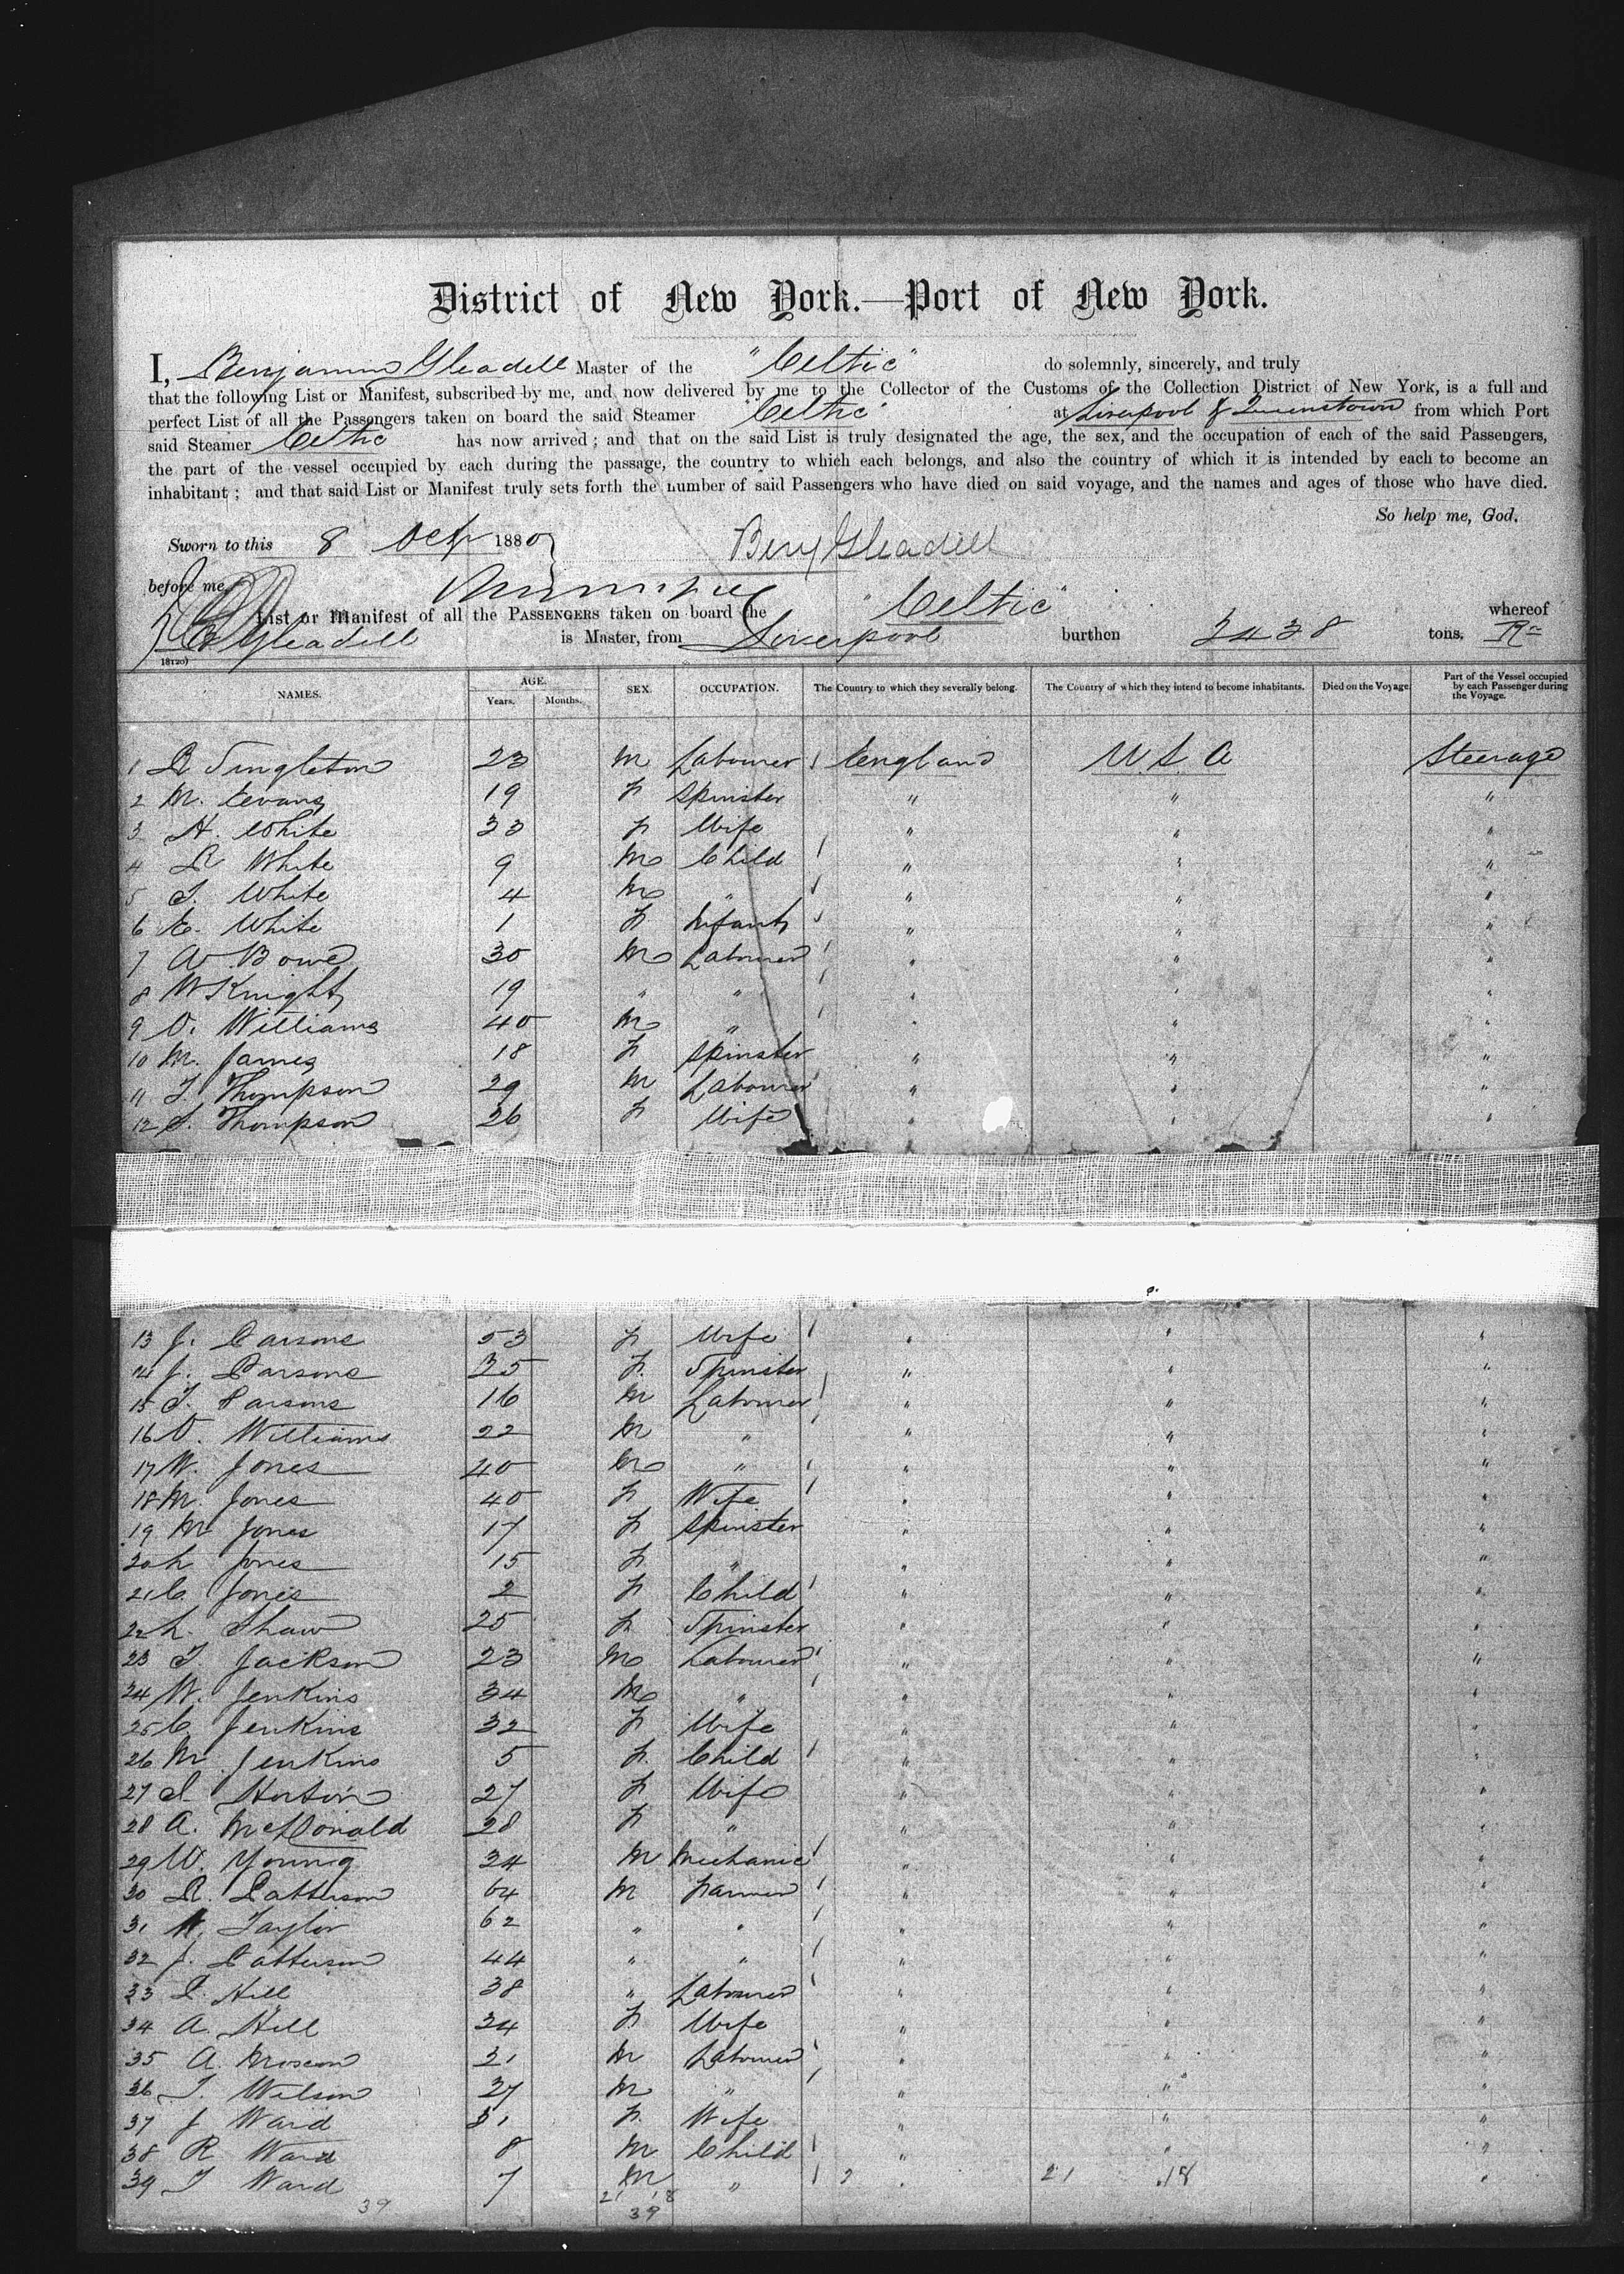 District of New York.—Port of New York.
I, Benjamin Gleadell Master of the "Celtic" do solemnly, sincerely, and truly
that the following List or Manifest, subscribed by me, and now delivered by me to the Collector of the Customs of the Collection District of New York, is a full and
perfect List of all the Passengers taken on board the said Steamer "Celtic" at Liverpool & Queenstown from which Port
said Steamer Celtic has now arrived; and that on the said List is truly designated the age, the sex, and the occupation of each of the said Passengers,
the part of the vessel occupied by each during the passage, the country to which each belongs, and also the country of which it is intended by each to become an
inhabitant; and that said List or Manifest truly sets forth the number of said Passengers who have died on said voyage, and the names and ages of those who have died.
So help me, God.
Sworn to this 8 Oct 1880 Benj Gleadell
before me,
List or Manifest of all the PASSENGERS taken on board the "Celtic" whereof
B Gleadell is Master, from Liverpool burthen 3438 tons.
18120)
NAMES. AGE. Years. Months. SEX. OCCUPATION. The Country to which they severally belong. The Country of which they intend to become inhabitants. Died on the Voyage. Part of the Vessel occupied by each Passenger during the Voyage.
1 R Singleton 23 M Labourer England U S A Steerage
2 M. Evans 19 F Spinster " " "
3 H. White 33 F Wife " " "
4 R White 9 M Child " " "
5 T. White 4 M " " " "
6 E. White 1 F Infant " " "
7 W Bowe 30 M Labourer " " "
8 W Knight 19 " " " " "
9 D. Williams 40 M " " " "
10 M. James 18 F Spinster " " "
11 T. Thompson 29 M Labourer " " "
12 S. Thompson 26 F Wife " " "
13 J. Parsons 53 F Wife " " "
14 J. Parsons 25 F. Spinster " " "
15 T. Parsons 16 M Labourer " " "
16 D. Williams 22 M " " " "
17 W. Jones 40 M " " " "
18 M. Jones 40 F Wife " " "
19 M Jones 17 F Spinster " " "
20 L Jones 15 F " " " "
21 C Jones 2 F Child " " "
22 L. Shaw 25 F Spinster " " "
23 T Jackson 23 M Labourer " " "
24 W. Jenkins 34 M " " " "
25 C. Jenkins 32 F Wife " " "
26 M Jenkins 5 F. Child " " "
27 S Horton 27 F Wife " " "
28 A. McDonald 28 F " " " "
29 W. Young 24 M Mechanic " " "
30 R. Patterson 64 M Farmer " " "
31 W. Taylor 62 " " " " "
32 J. Patterson 44 " " " " "
33 P. Hill 38 " Labourer " " "
34 A. Hill 34 F Wife " " "
35 A. 21 M Labourer " " "
36 T. Wilson 27 M " " " "
37 J Ward 31 F. Wife " " "
38 R Ward 8 M Child " " "
39 T Ward 7 M " " 21 18 "
39 21 18
39